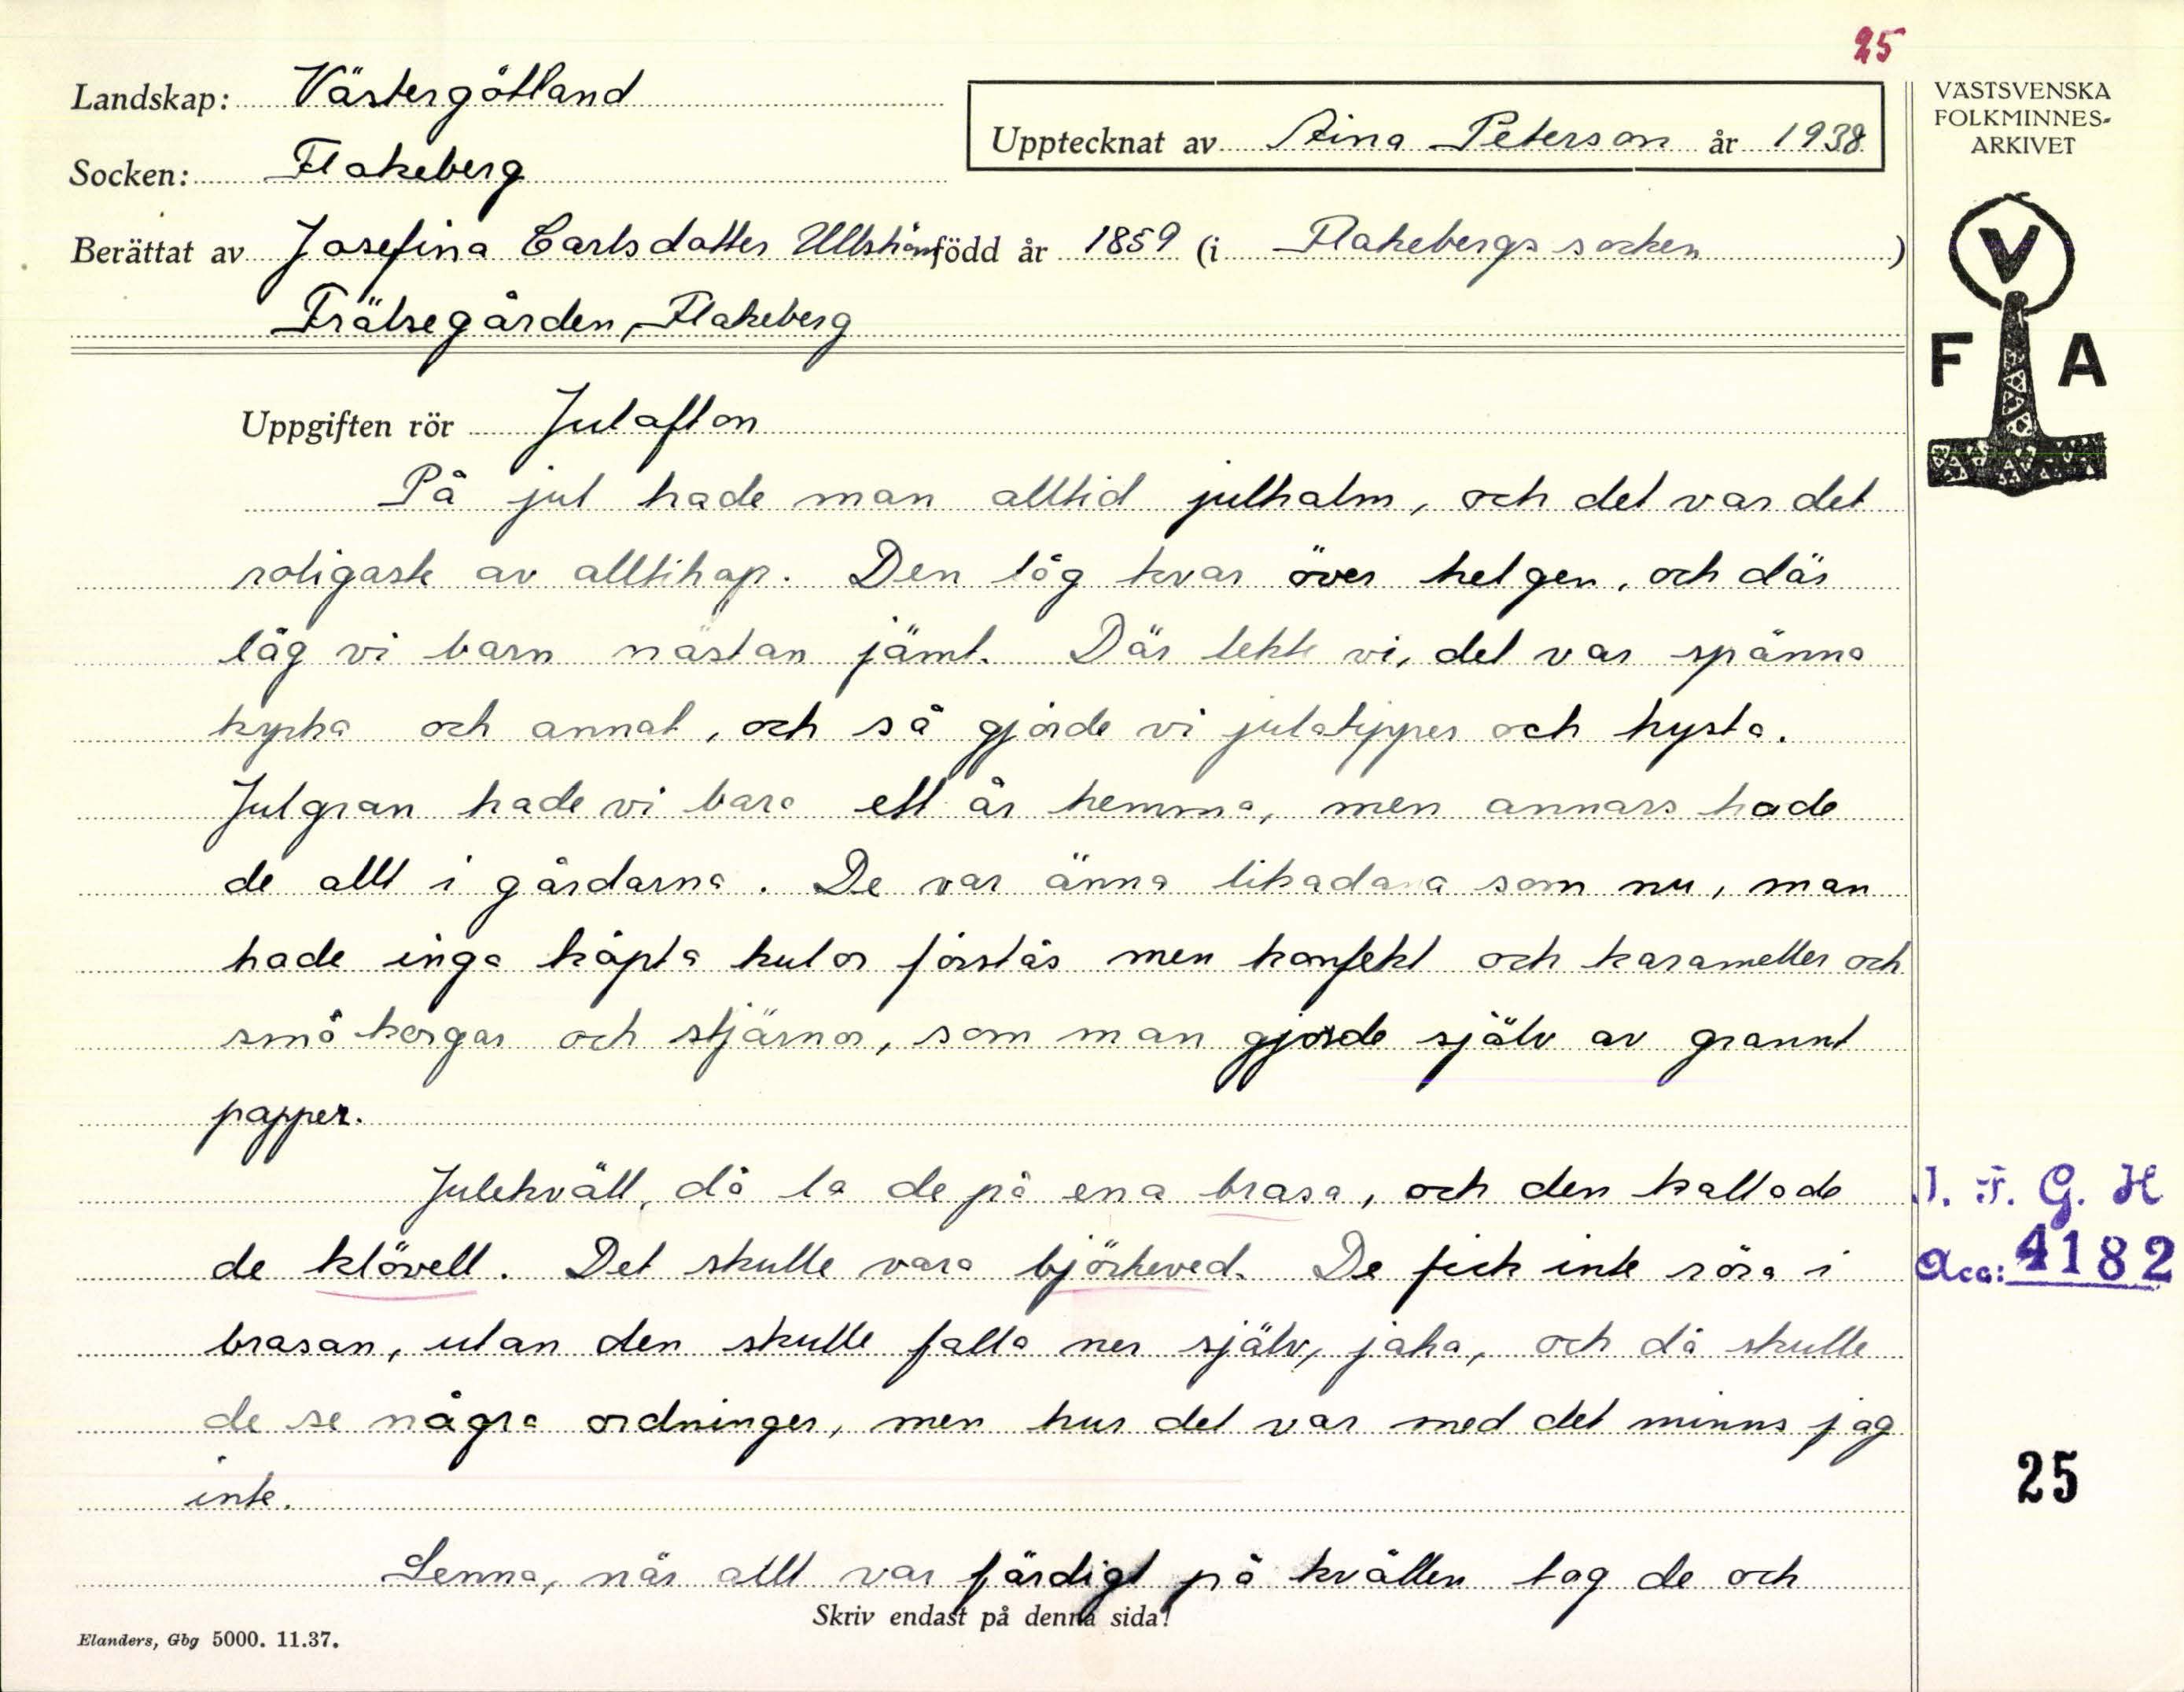 25
Landskap: Västergötland
Upptecknat av Stina Peterson år 1938
VÄSTSVENSKA
FOLKMINNES-
ARKIVET
Socken: Flakeberg
Berättat av Josefina Carlsdotter född år 1859 (i Flakebergs socken)
Frälsegården, Flakeberg
V
F A
Uppgiften rör Julafton
På jul hade man alltid julhalm, och det var det
roligaste av alltihop. Den låg kvar över helgen, och där
låg vi barn nästan jämt. Där lekte vi, det var spänna
kyrka och annat, och så gjorde vi julatipper och hysta.
Julgran hade vi bara ett år hemma, men annars hade
de allt i gårdarna. De var änna likadana som nu, man
hade inga köpta kulor förstås men konfekt och karameller och
små korgar och stjärnor, som man gjorde själv av grannt
papper.
Julekväll, då la de på ena brasa, och den kallade
de klövell. Det skulle vara björkeved. De fick inte röra i
brasan, utan den skulle falla ner själv, jaha, och då skulle
de se några ordninger, men hur det var med det minns jag
inte.
Senna, när allt var färdigt på kvällen tog de och
Skriv endast på denna sida!
Elanders, Gbg 5000. 11.37.
I. F. G. H
Acc: 4182
25